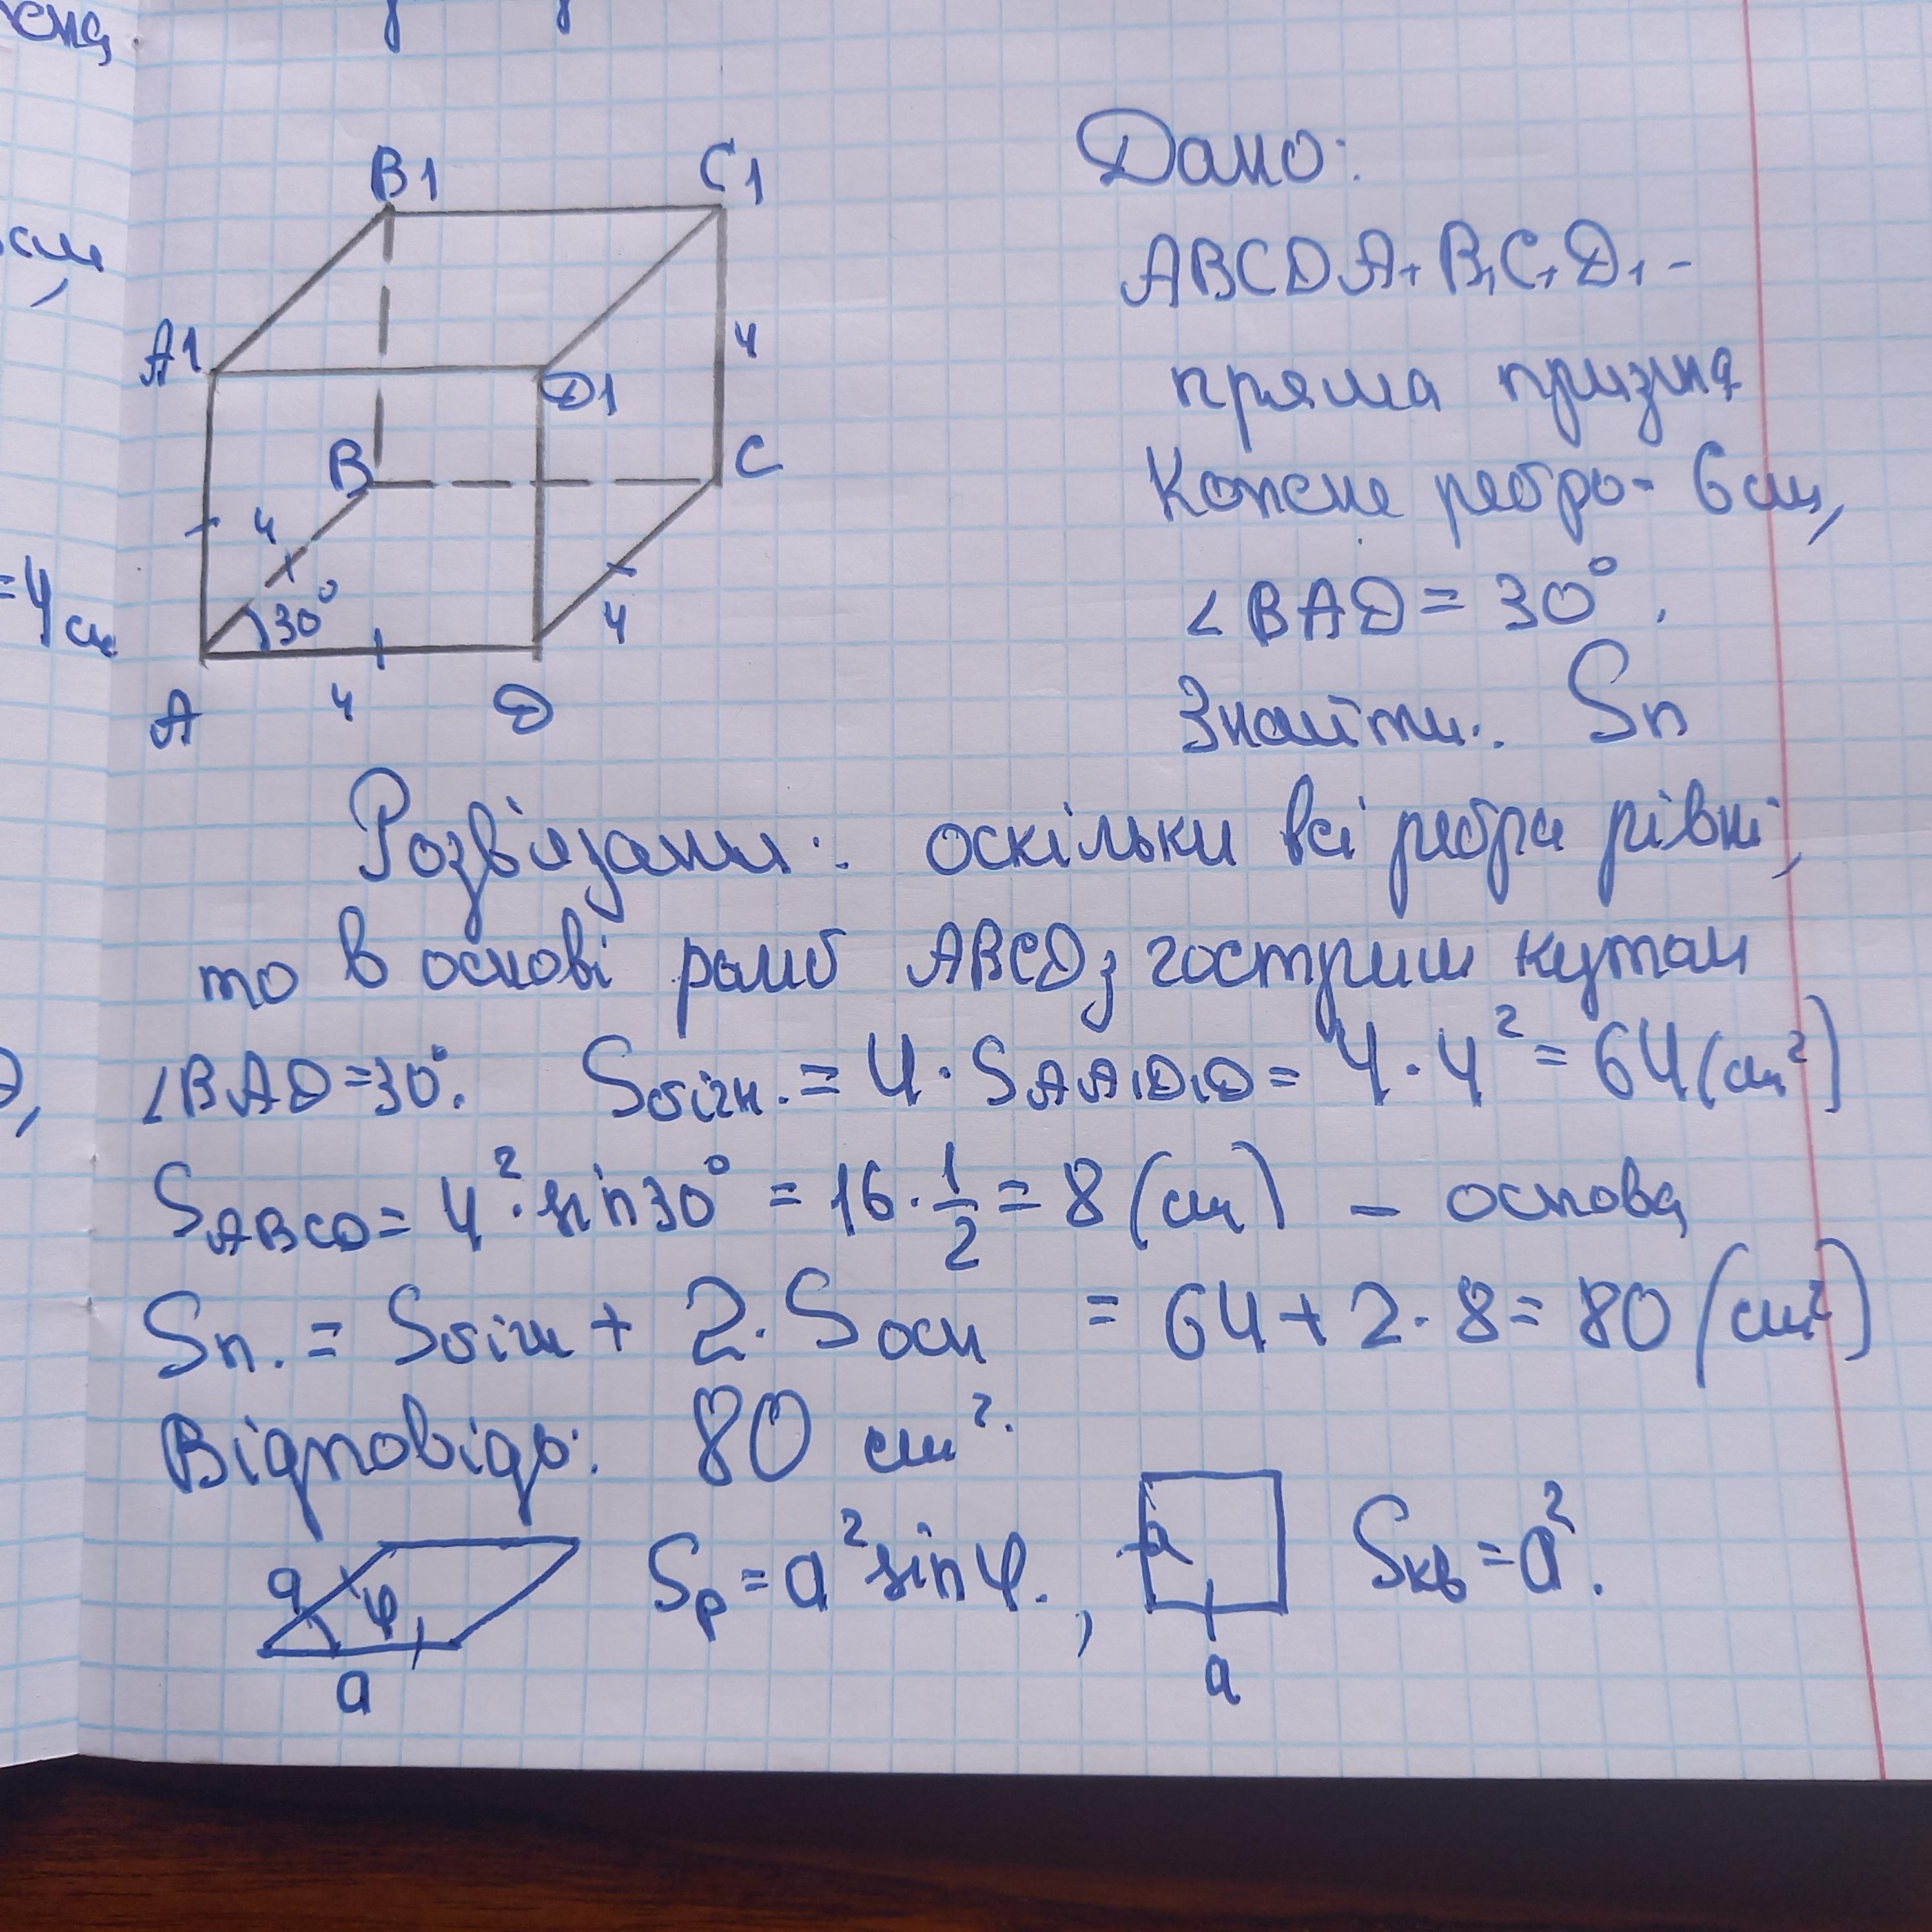 B1 C1
A1 D1
4
B C
4
30°
4
A 4 D
Дано:
ABCDA1B1C1D1 -
пряма призма
Кожне ребро - 6 см,
∠BAD = 30°.
Знайти: Sп
Розв'язання: оскільки всі ребра рівні,
то в основі ромб ABCD з гострим кутом
∠BAD=30°. Sбічн. = 4·SAA1D1D = 4·4² = 64 (см²)
SABCD = 4²·sin30° = 16·1/2 = 8 (см) – основа
Sп. = Sбічн + 2·Sосн = 64+2·8 = 80 (см²)
Відповідь: 80 см².
a φ a Sр = a² sinφ. , a a Sкв = a².
см,
=4см